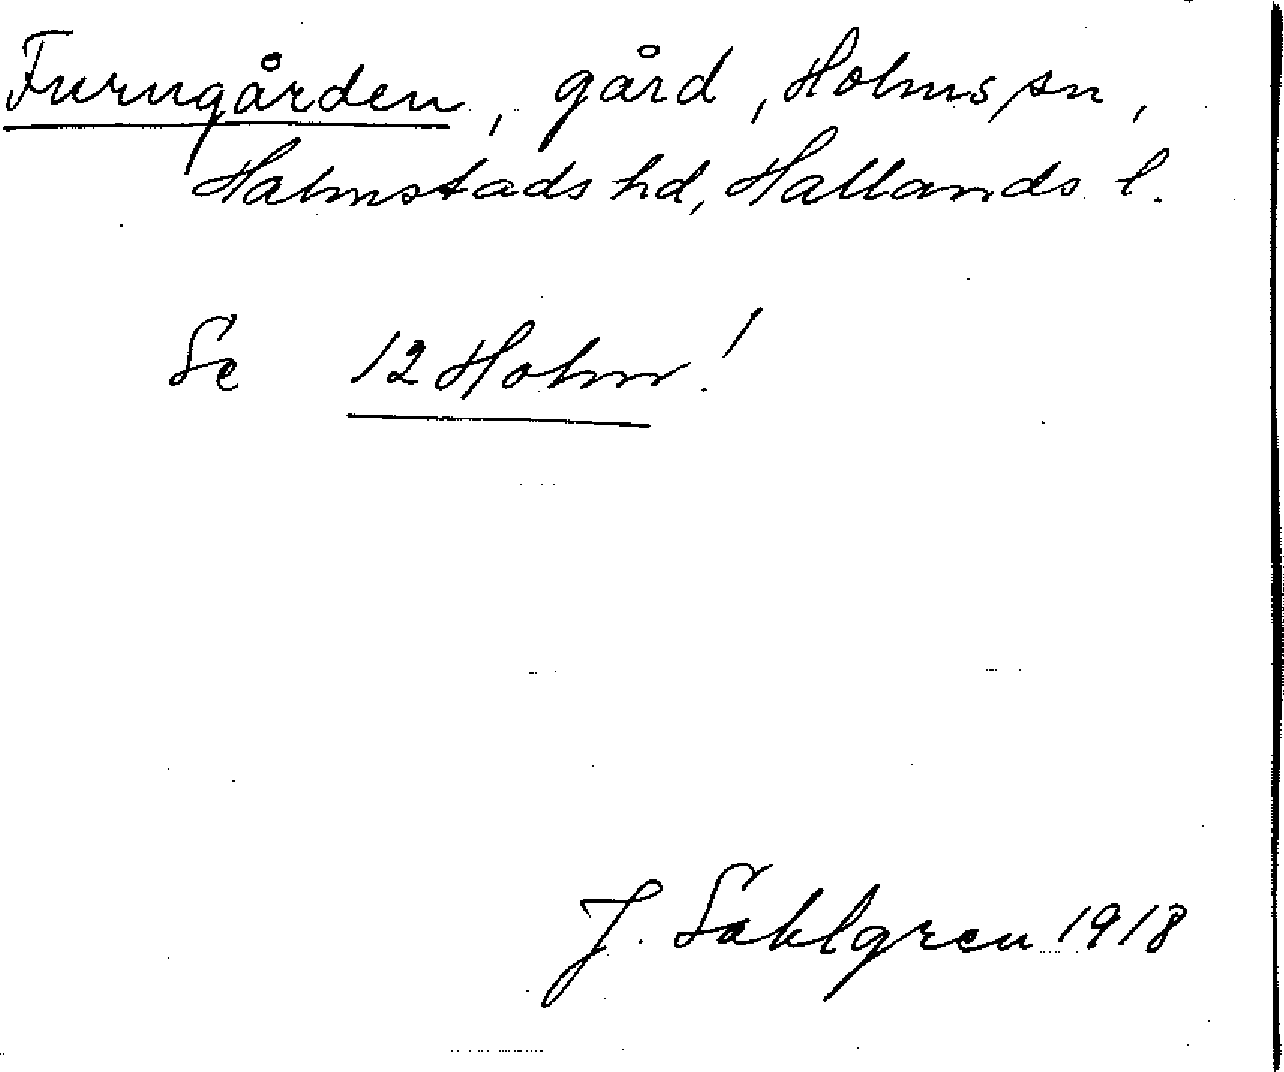 Furugården, gård, Holms sn,
Halmstads hd, Hallands l.
Se 12 Holm!
J. Sahlgren 1918